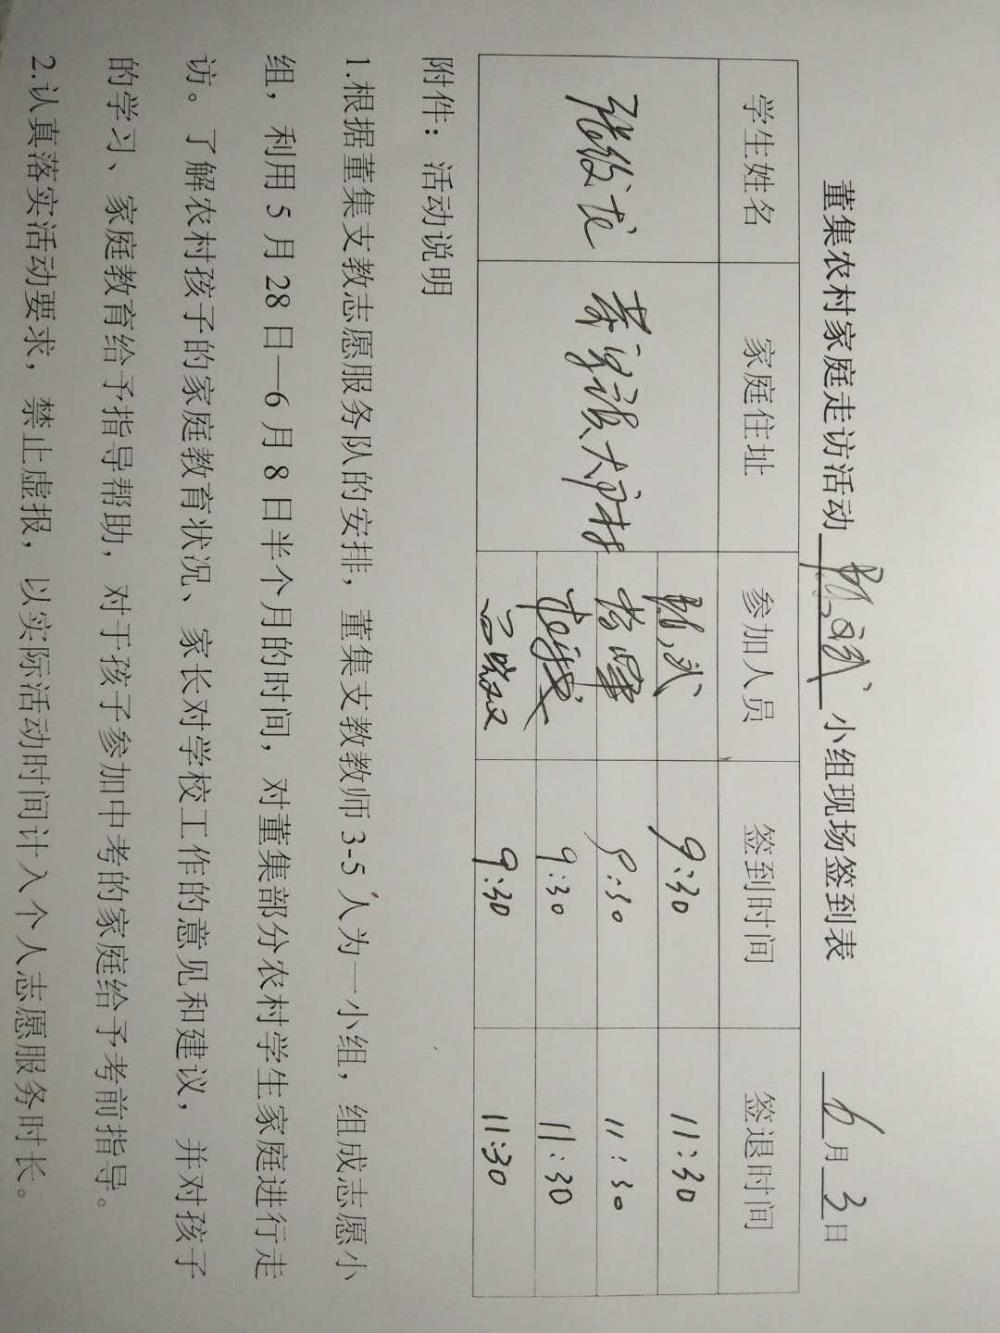 董集农村家庭走访活动 小组现场签到表 6月3日
学生姓名 家庭住址 参加人员 签到时间 签退时间
9:30 11:30
9:30 11:30
9:30 11:30
9:30 11:30
附件：活动说明
1.根据董集支教志愿服务队的安排，董集支教教师3-5人为一小组，组成志愿小
组，利用5月28日—6月8日半个月的时间，对董集部分农村学生家庭进行走
访。了解农村孩子的家庭教育状况、家长对学校工作的意见和建议，并对孩子
的学习、家庭教育给予指导帮助，对于孩子参加中考的家庭给予考前指导。
2.认真落实活动要求，禁止虚报，以实际活动时间计入个人志愿服务时长。